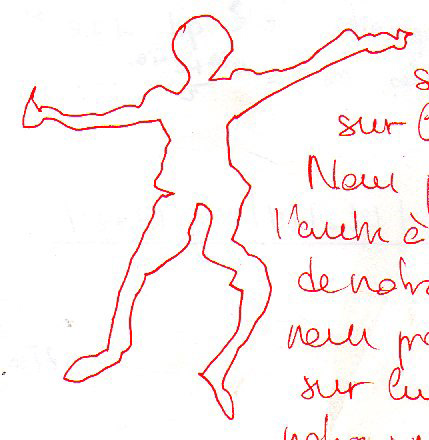 s
sur l
Nous p
l'autre à
de notre
nous pr
sur lu